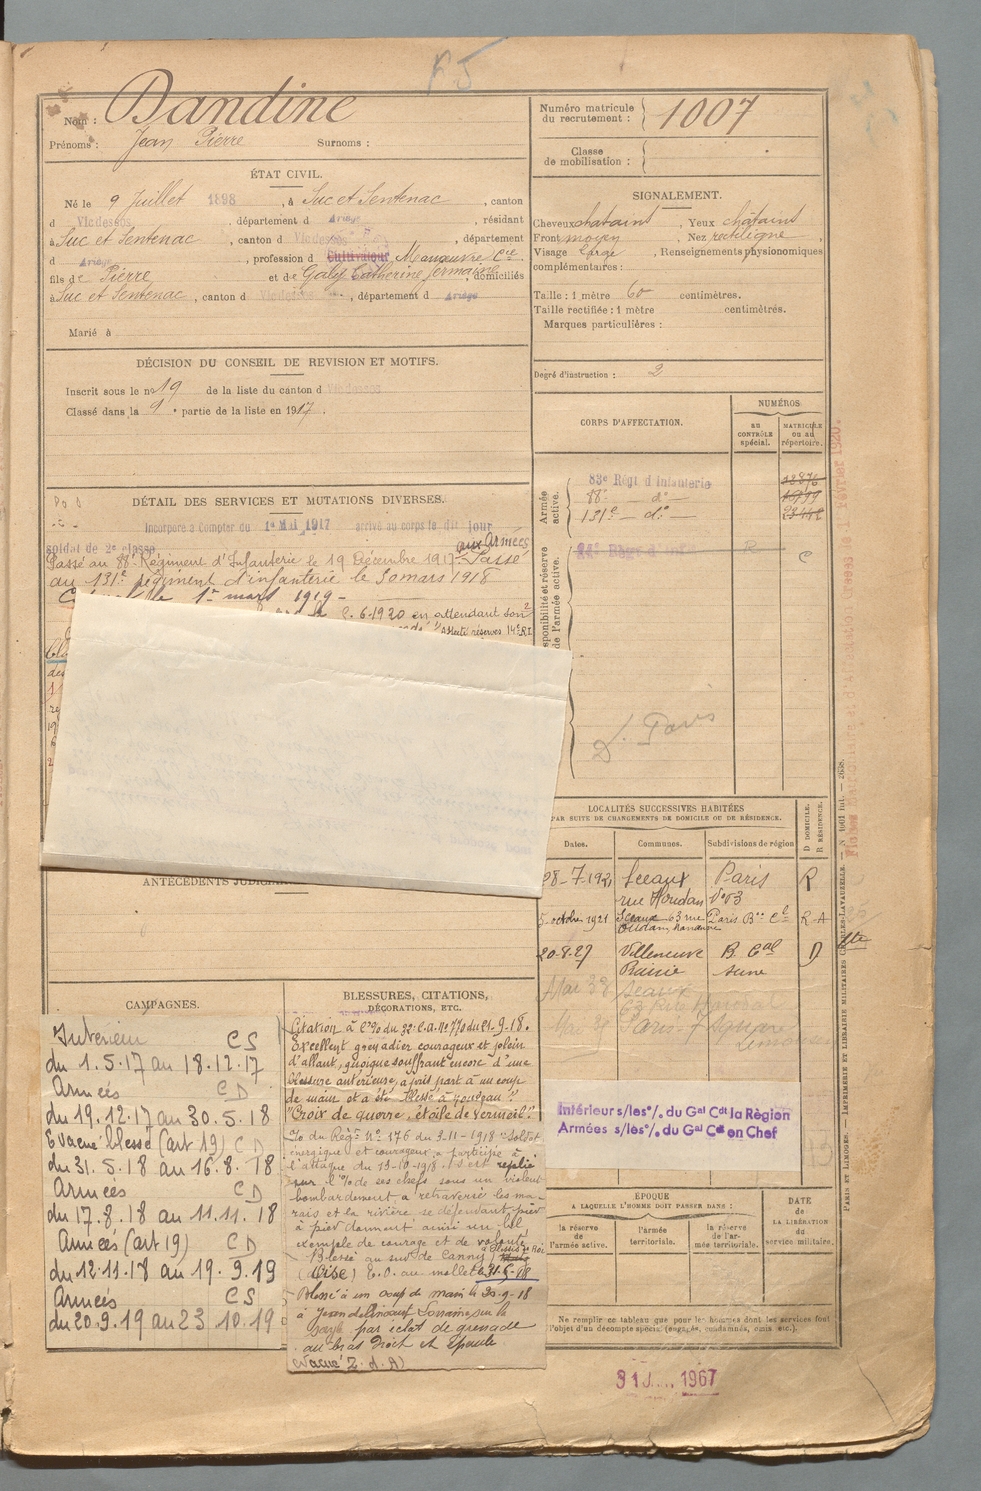 Nom : Dandine
Prénoms : Jean Pierre Surnoms :
Numéro matricule du recrutement : 1007
Classe de mobilisation :
ÉTAT CIVIL.
Né le 9 Juillet 1898, à Suc et Sentenac, canton
d Vicdessos, département d Ariège, résidant
à Suc et Sentenac, canton d Vicdessos, département
d Ariège, profession d Cultivateur Manœuvre Cie.
fils de Pierre et de Galy Catherine Germaine, domiciliés
à Suc et Sentenac, canton d Vicdessos, département d Ariège
Marié à
SIGNALEMENT.
Cheveux chatains Yeux châtains
Front moyen Nez rectiligne,
Visage large, Renseignements physionomiques
complémentaires :
Taille : 1 mètre 60 centimètres.
Taille rectifiée : 1 mètre centimètres.
Marques particulières :
Degré d'instruction : 2
DÉCISION DU CONSEIL DE REVISION ET MOTIFS.
Inscrit sous le no 19 de la liste du canton d Vicdessos
Classé dans la 9e partie de la liste en 1917.
CORPS D'AFFECTATION.
NUMÉROS
AU CONTRÔLE spécial.
MATRICULE ou au répertoire.
Armée active.
83e Régt d'Infanterie
88e do
131e do
R
DÉTAIL DES SERVICES ET MUTATIONS DIVERSES.
Incorporé à compter du 1er Mai 1917 arrivé au corps le dit jour
soldat de 2e classe aux Armées
Passé au 88e Régiment d'Infanterie le 19 Décembre 1917. Passé
au 131e régiment d'infanterie le 30 mars 1918
1er mars 1919
6.1920 en attendant son
Affecté réserves 14e R.I.
D. Paris
LOCALITÉS SUCCESSIVES HABITÉES
PAR SUITE DE CHANGEMENTS DE DOMICILE OU DE RÉSIDENCE.
Dates. Communes. Subdivisions de région
D DOMICILE. R RÉSIDENCE.
28-7-1921 Sceaux Paris R
rue Houdan No 63
5 octobre 1921 Sceaux 63 rue Paris Bau Cal R-A
Houdan
20-8-27 Villeneuve B. Cal D
seine
Mai 38 Sceaux
Paris 7 Square
ANTÉCÉDENTS JUDICIAIRES
CAMPAGNES.
Intérieur CS
du 1.5.17 au 18.12.17
Armées CD
du 19.12.17 au 30.5.18
Evacué blessé (art 19) CD
du 31.5.18 au 16.8.18
Armées CD
du 17.8.18 au 11.11.18
Armées (art 19) CD
du 12.11.18 au 19.9.19
Armées CS
du 20.9.19 au 23.10.19
BLESSURES, CITATIONS,
DÉCORATIONS, ETC.
Citation à l'o/ du 32e C.A. No 770 du 21.9.18.
Excellent grenadier courageux et plein
d'allant, quoique souffrant encore d'une
blessure antérieure, a pris part à un coup
de main et a été blessé à nouveau".
"Croix de guerre, étoile de vermeil".
Io du Régt No 176 du 3-11-1918 "Soldat
énergique et courageux a participé à
l'attaque du 13-10-1918. S'est replié
sur l'o/ de ses chefs sous un violent
bombardement a retraversé les ma-
rais et la rivière se défendant pied
à pied donnant ainsi un bel
exemple de courage et de volonté.
Blessé au sud de Canny
(Oise) E.O. au mollet le 31-5-18
Blessé à un coup de main le 20-9-18
par éclat de grenade
au bras droit et épaule
évacué Z. d. A)
Intérieur s/les o/o du Gal Cdt la Région
Armées s/les o/o du Gal Cdt en Chef
ÉPOQUE
A LAQUELLE L'HOMME DOIT PASSER DANS :
la réserve de l'armée active.
l'armée territoriale.
la réserve de l'armée territoriale.
DATE DE LA LIBÉRATION du service militaire.
Ne remplir ce tableau que pour les hommes dont les services font
l'objet d'un décompte spécial (engagés, condamnés, omis etc.).
1967
PARIS ET LIMOGES. — IMPRIMERIE ET LIBRAIRIE MILITAIRES CHARLES-LAVAUZELLE.